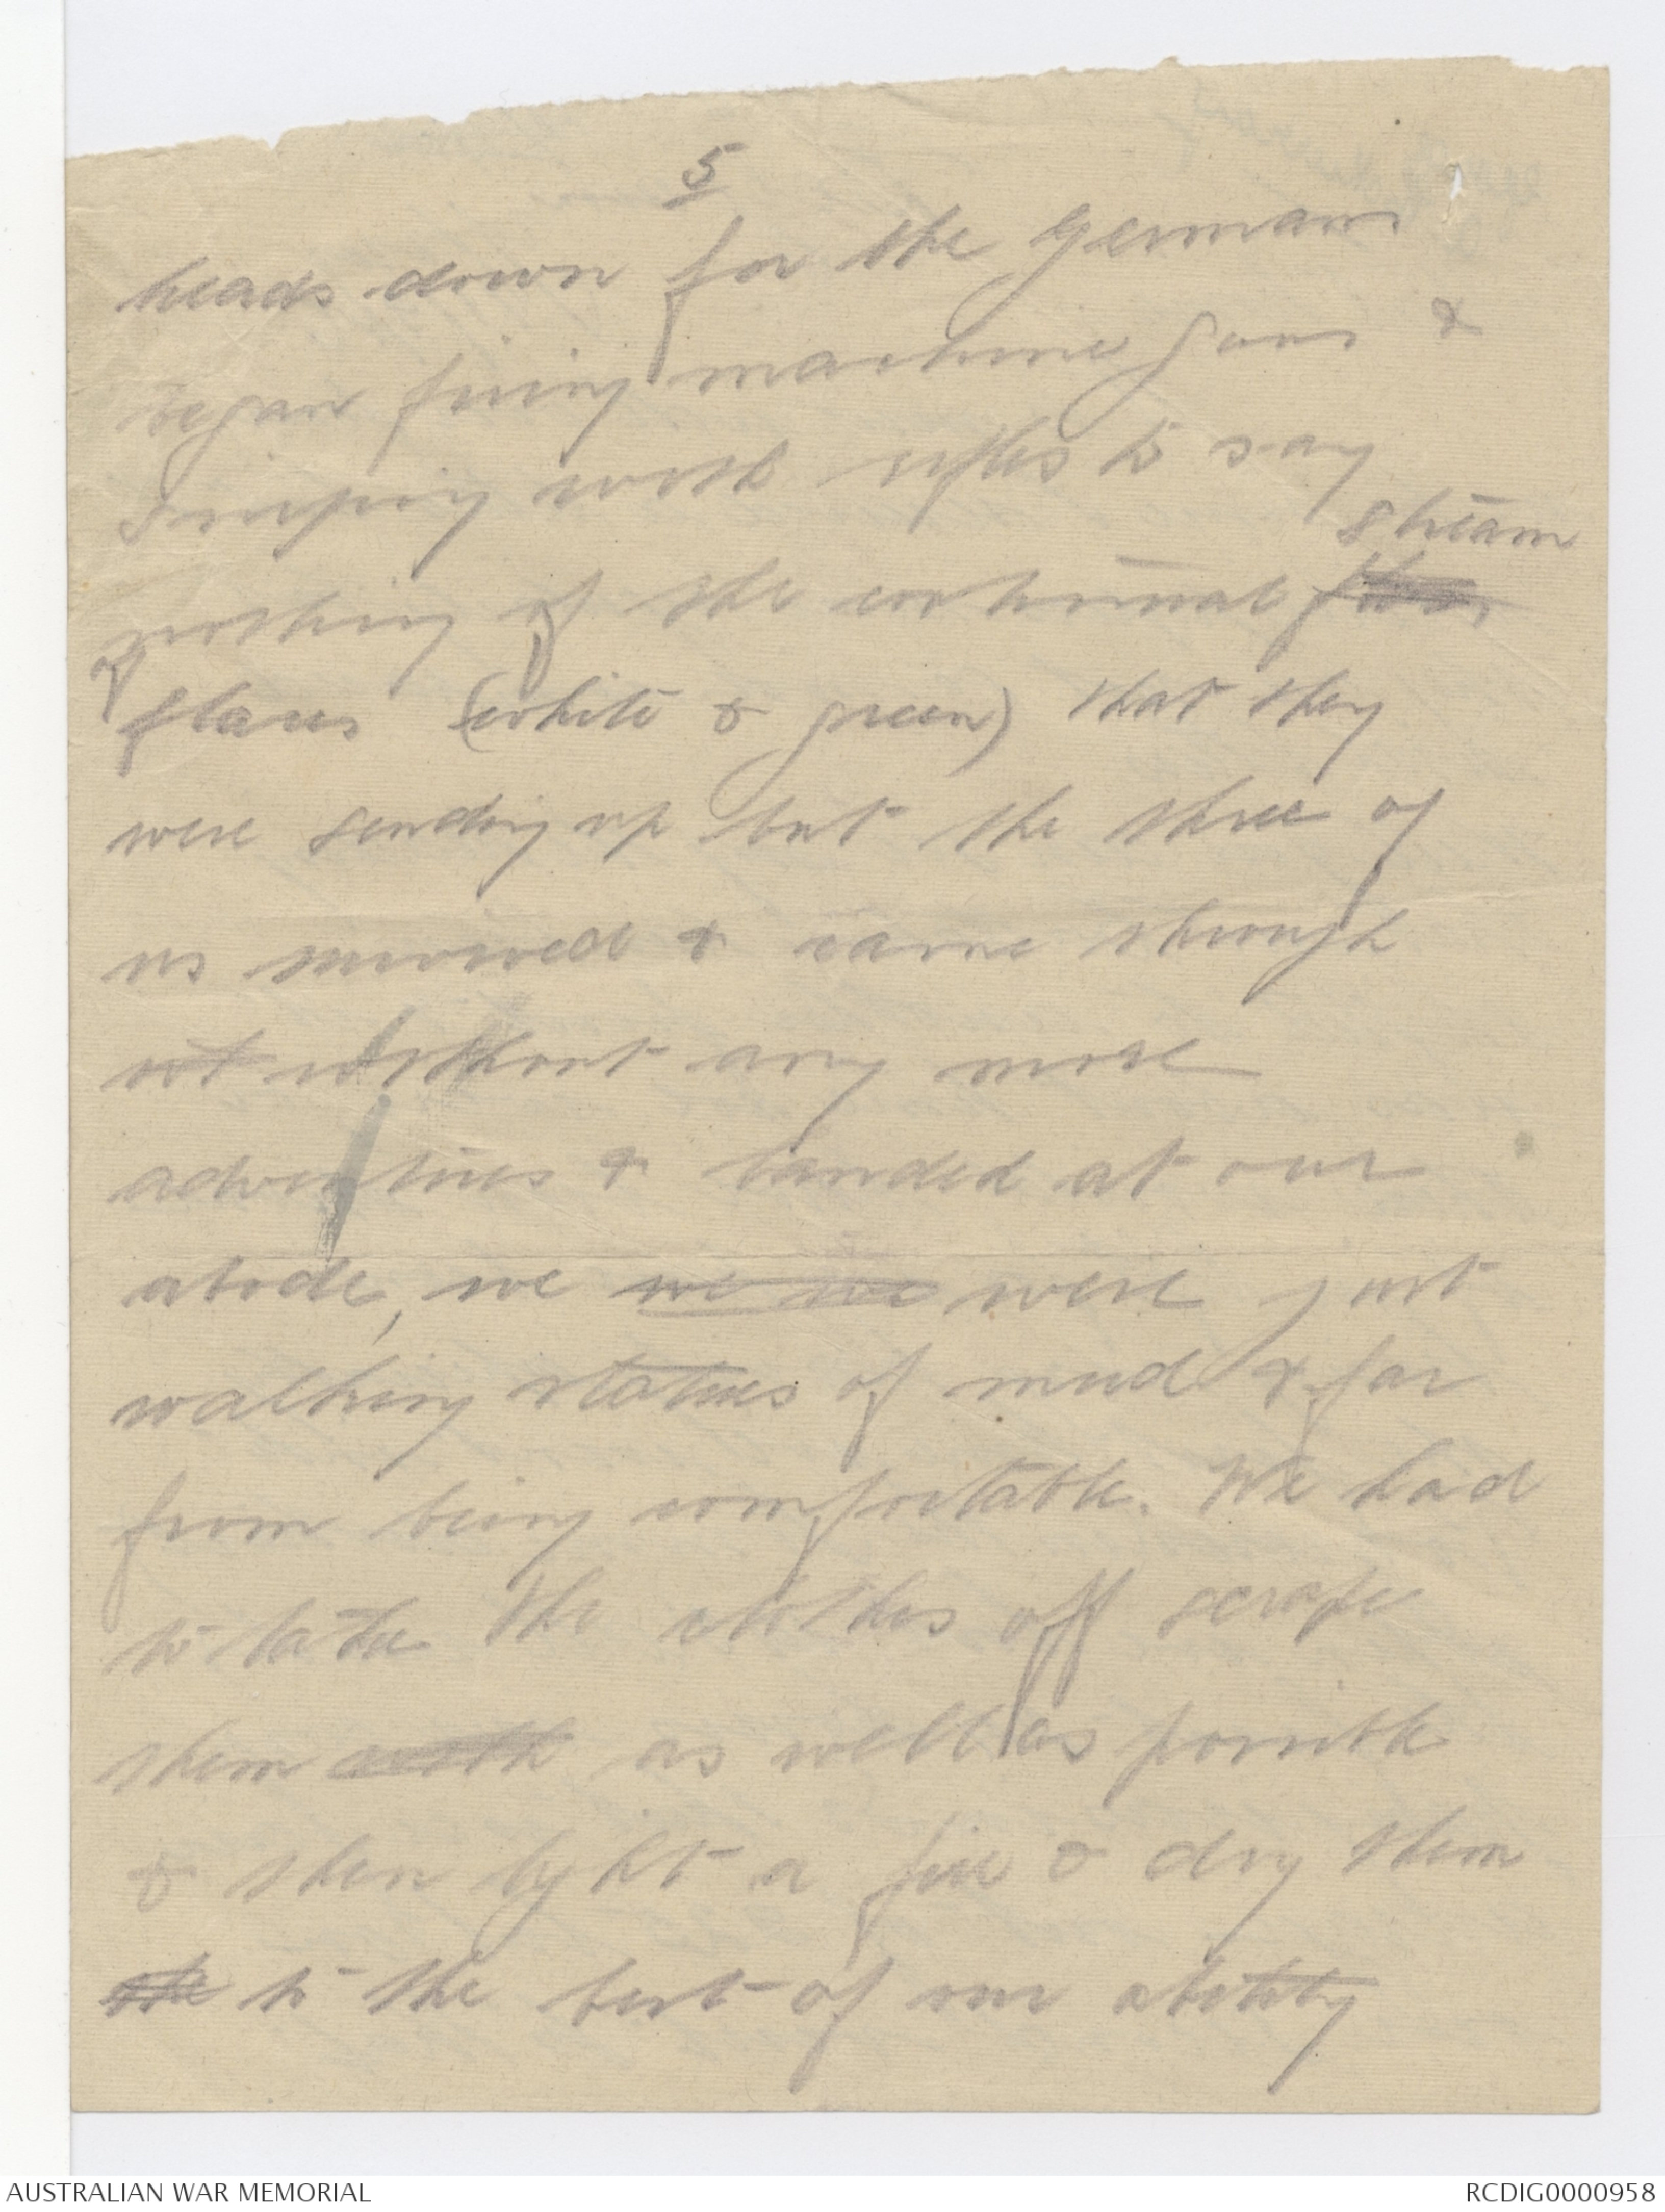 5
heads down for the Germans
began firing machine guns &
sniping with rifles to say
stream
nothing of the continual
of
flares (white & green) that they
were sending up but the three of
us survived & came through
without any more
adventures & landed at our
abode, we we we were just
walking statues of mud & far
from being comfortable. We had
to take the clothes off scrape
them with as well as possible
& then light a fire & dry them
the to the best of our ability
AUSTRALIAN WAR MEMORIAL
RCDIG0000958